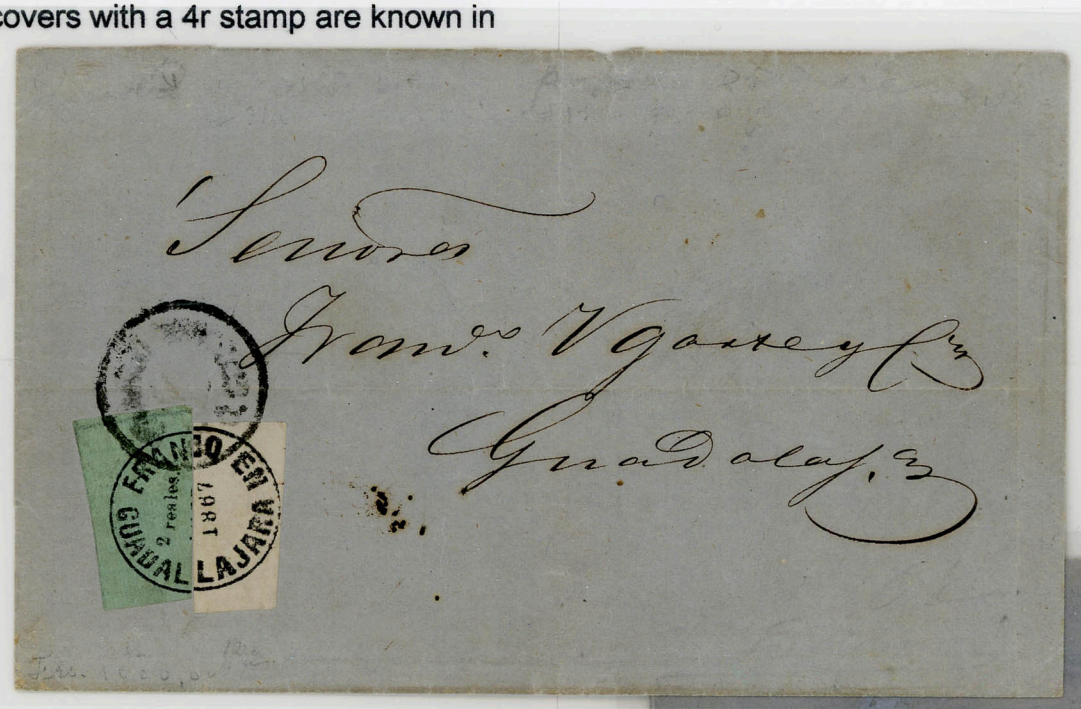 covers with a 4r stamp are known in
Señores
Fran.co V garte y Ca
Guadalaj.a
FRANCO EN
GUADALAJARA
2 reales.
1867